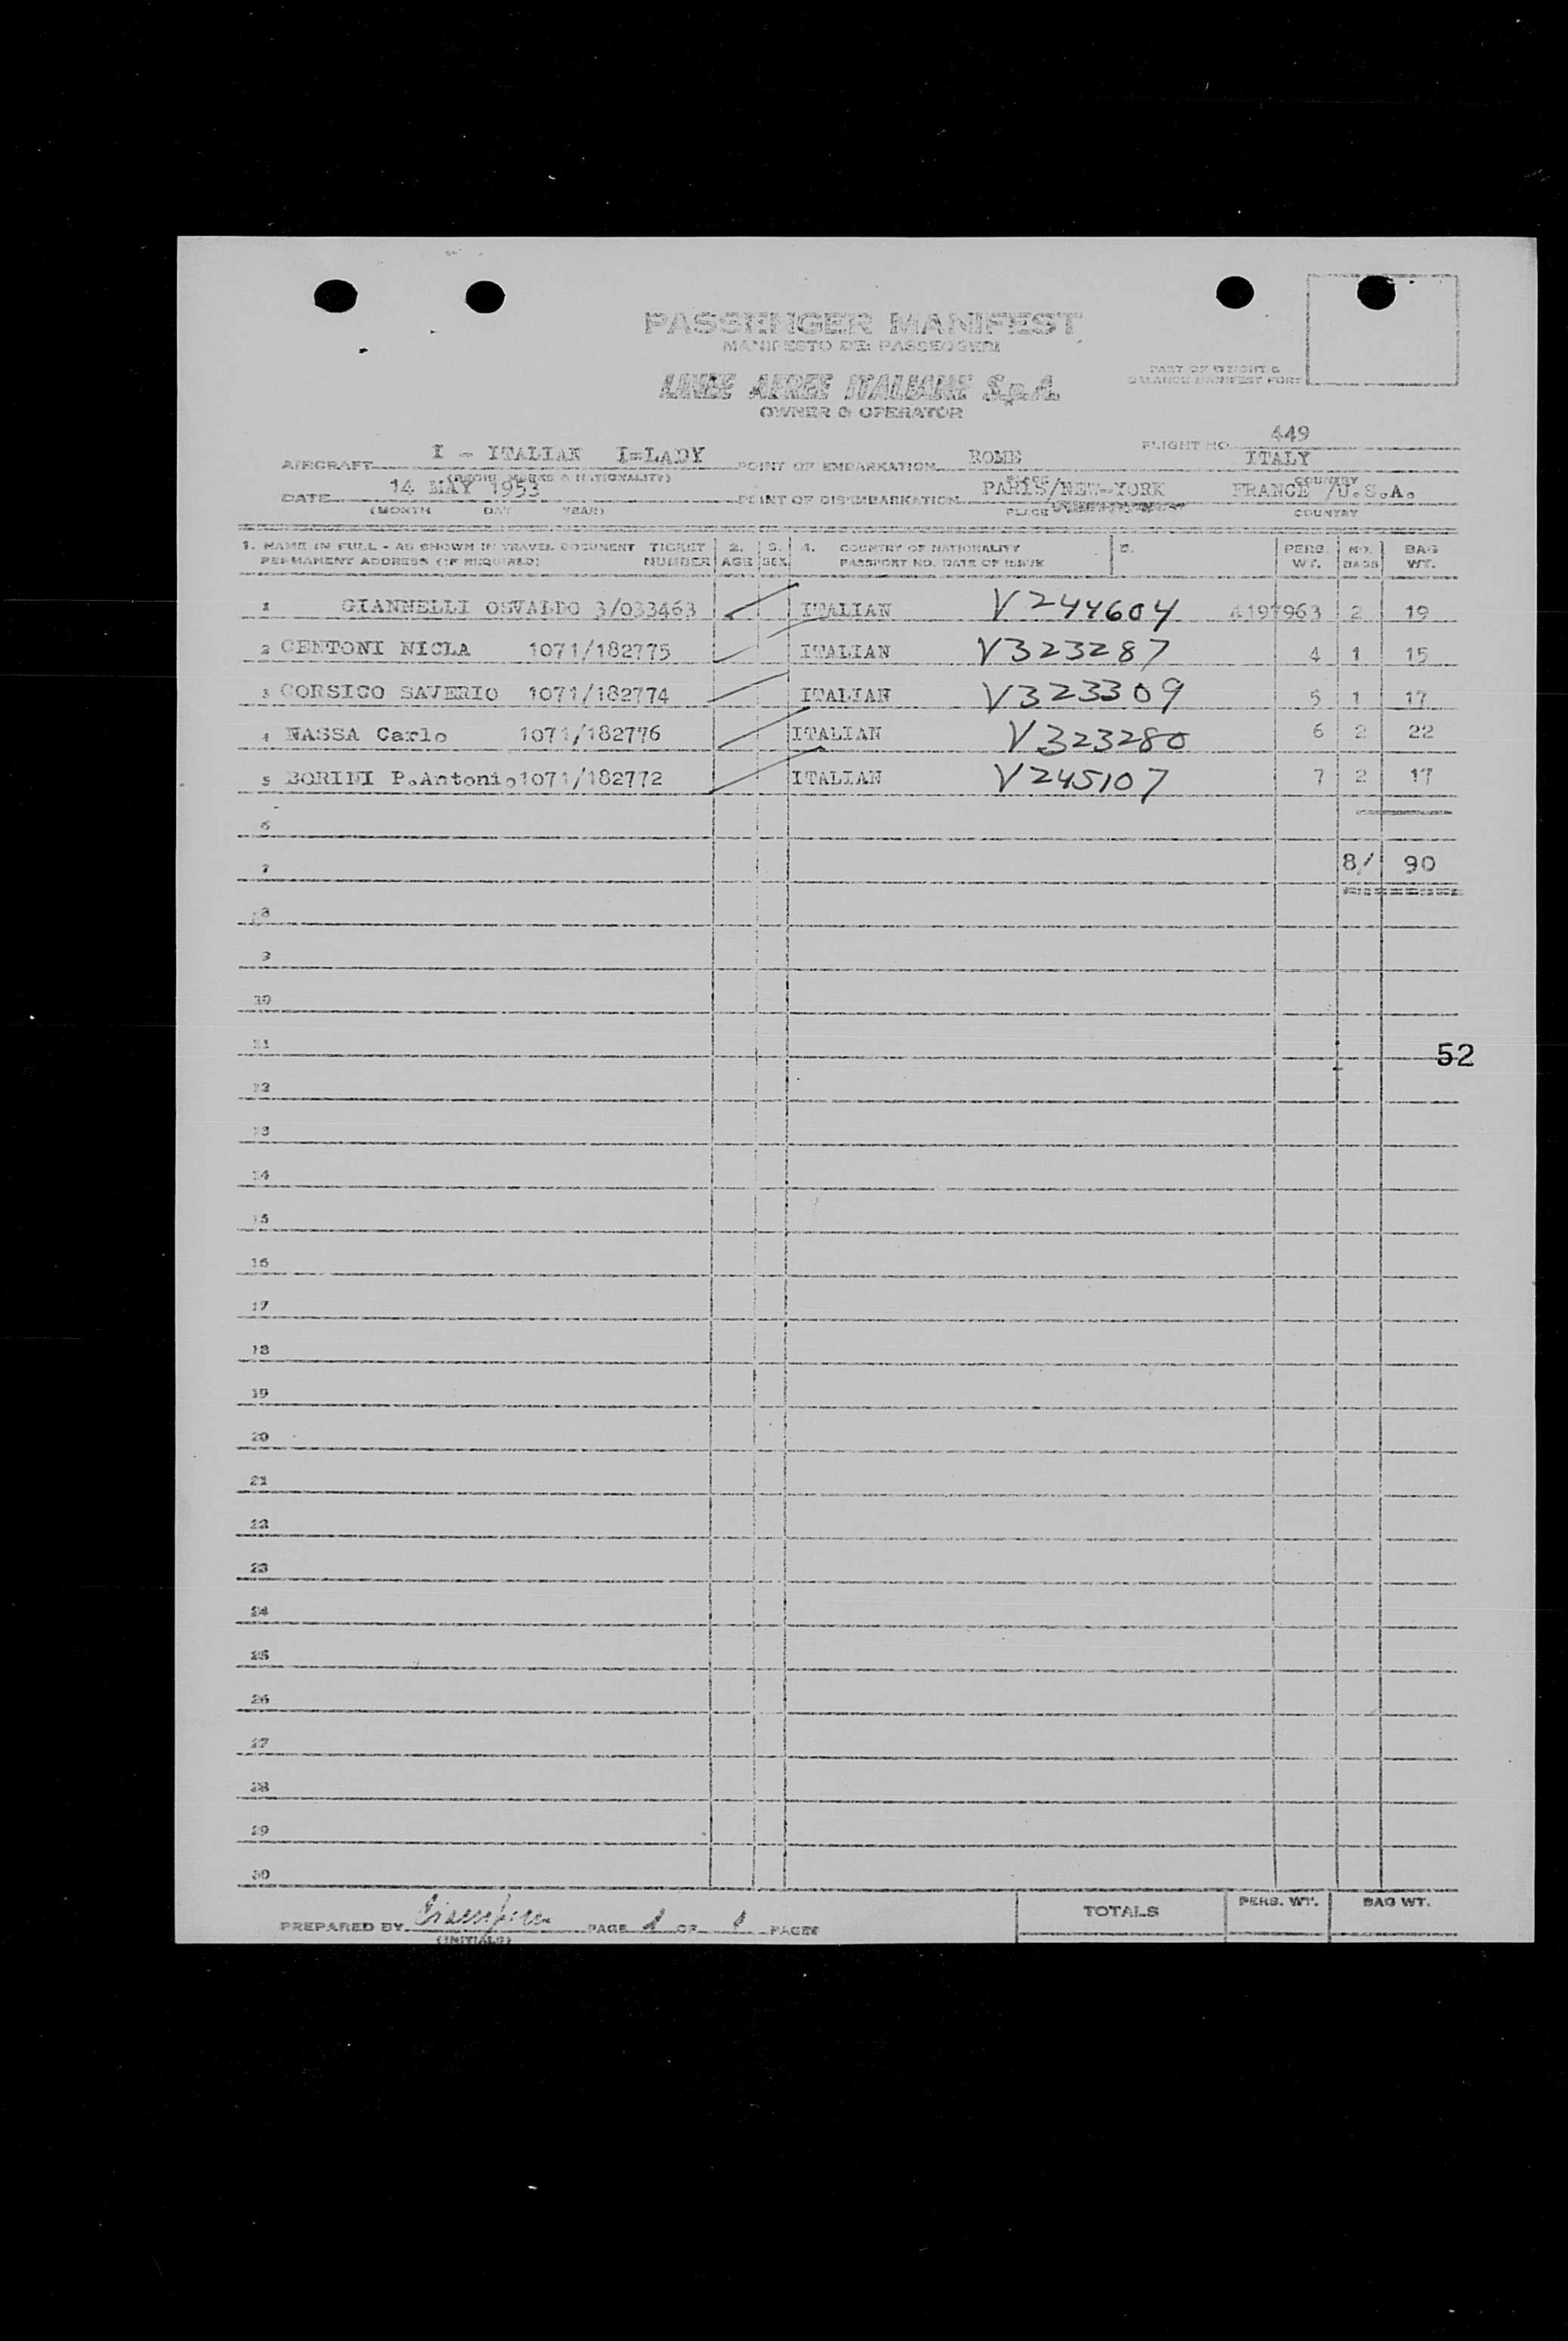 PASSENGER MANIFEST
MANIFESTO DEI PASSEGGERI
LINEE AEREE ITALIANE S.p.A.
OWNER & OPERATOR
PART OF WEIGHT &
BALANCE MANIFEST FORM
FLIGHT NO. 449
AIRCRAFT I - ITALIAN I=LADY POINT OF EMBARKATION ROME ITALY
(REGIS. MARKS & NATIONALITY) PLACE COUNTRY
DATE 14 MAY 1953 POINT OF DISEMBARKATION PARIS/NEW-YORK FRANCE /U.S.A.
(MONTH DAY YEAR) PLACE COUNTRY
1. NAME IN FULL - AS SHOWN IN TRAVEL DOCUMENT TICKET 2. 3. 4. COUNTRY OF NATIONALITY 5. PERS. NO. BAG
PERMANENT ADDRESS (IF REQUIRED) NUMBER AGE SEX PASSPORT NO. DATE OF ISSUE WT. BAGS WT.
1 GIANNELLI OSVALDO 3/033463 ITALIAN V244604 4197963 2 19
2 CENTONI NICLA 1071/182775 ITALIAN V323287 4 1 15
3 CORSICO SAVERIO 1071/182774 ITALIAN V323309 5 1 17
4 NASSA Carlo 1071/182776 ITALIAN V323280 6 2 22
5 BORINI P.Antonio 1071/182772 ITALIAN V245107 7 2 17
6
7 8/ 90
8
9
10
11
52
12
13
14
15
16
17
18
19
20
21
22
23
24
25
26
27
28
29
30
PREPARED BY PAGE 1 OF 1 PAGES
(INITIALS)
TOTALS PERS. WT. BAG WT.